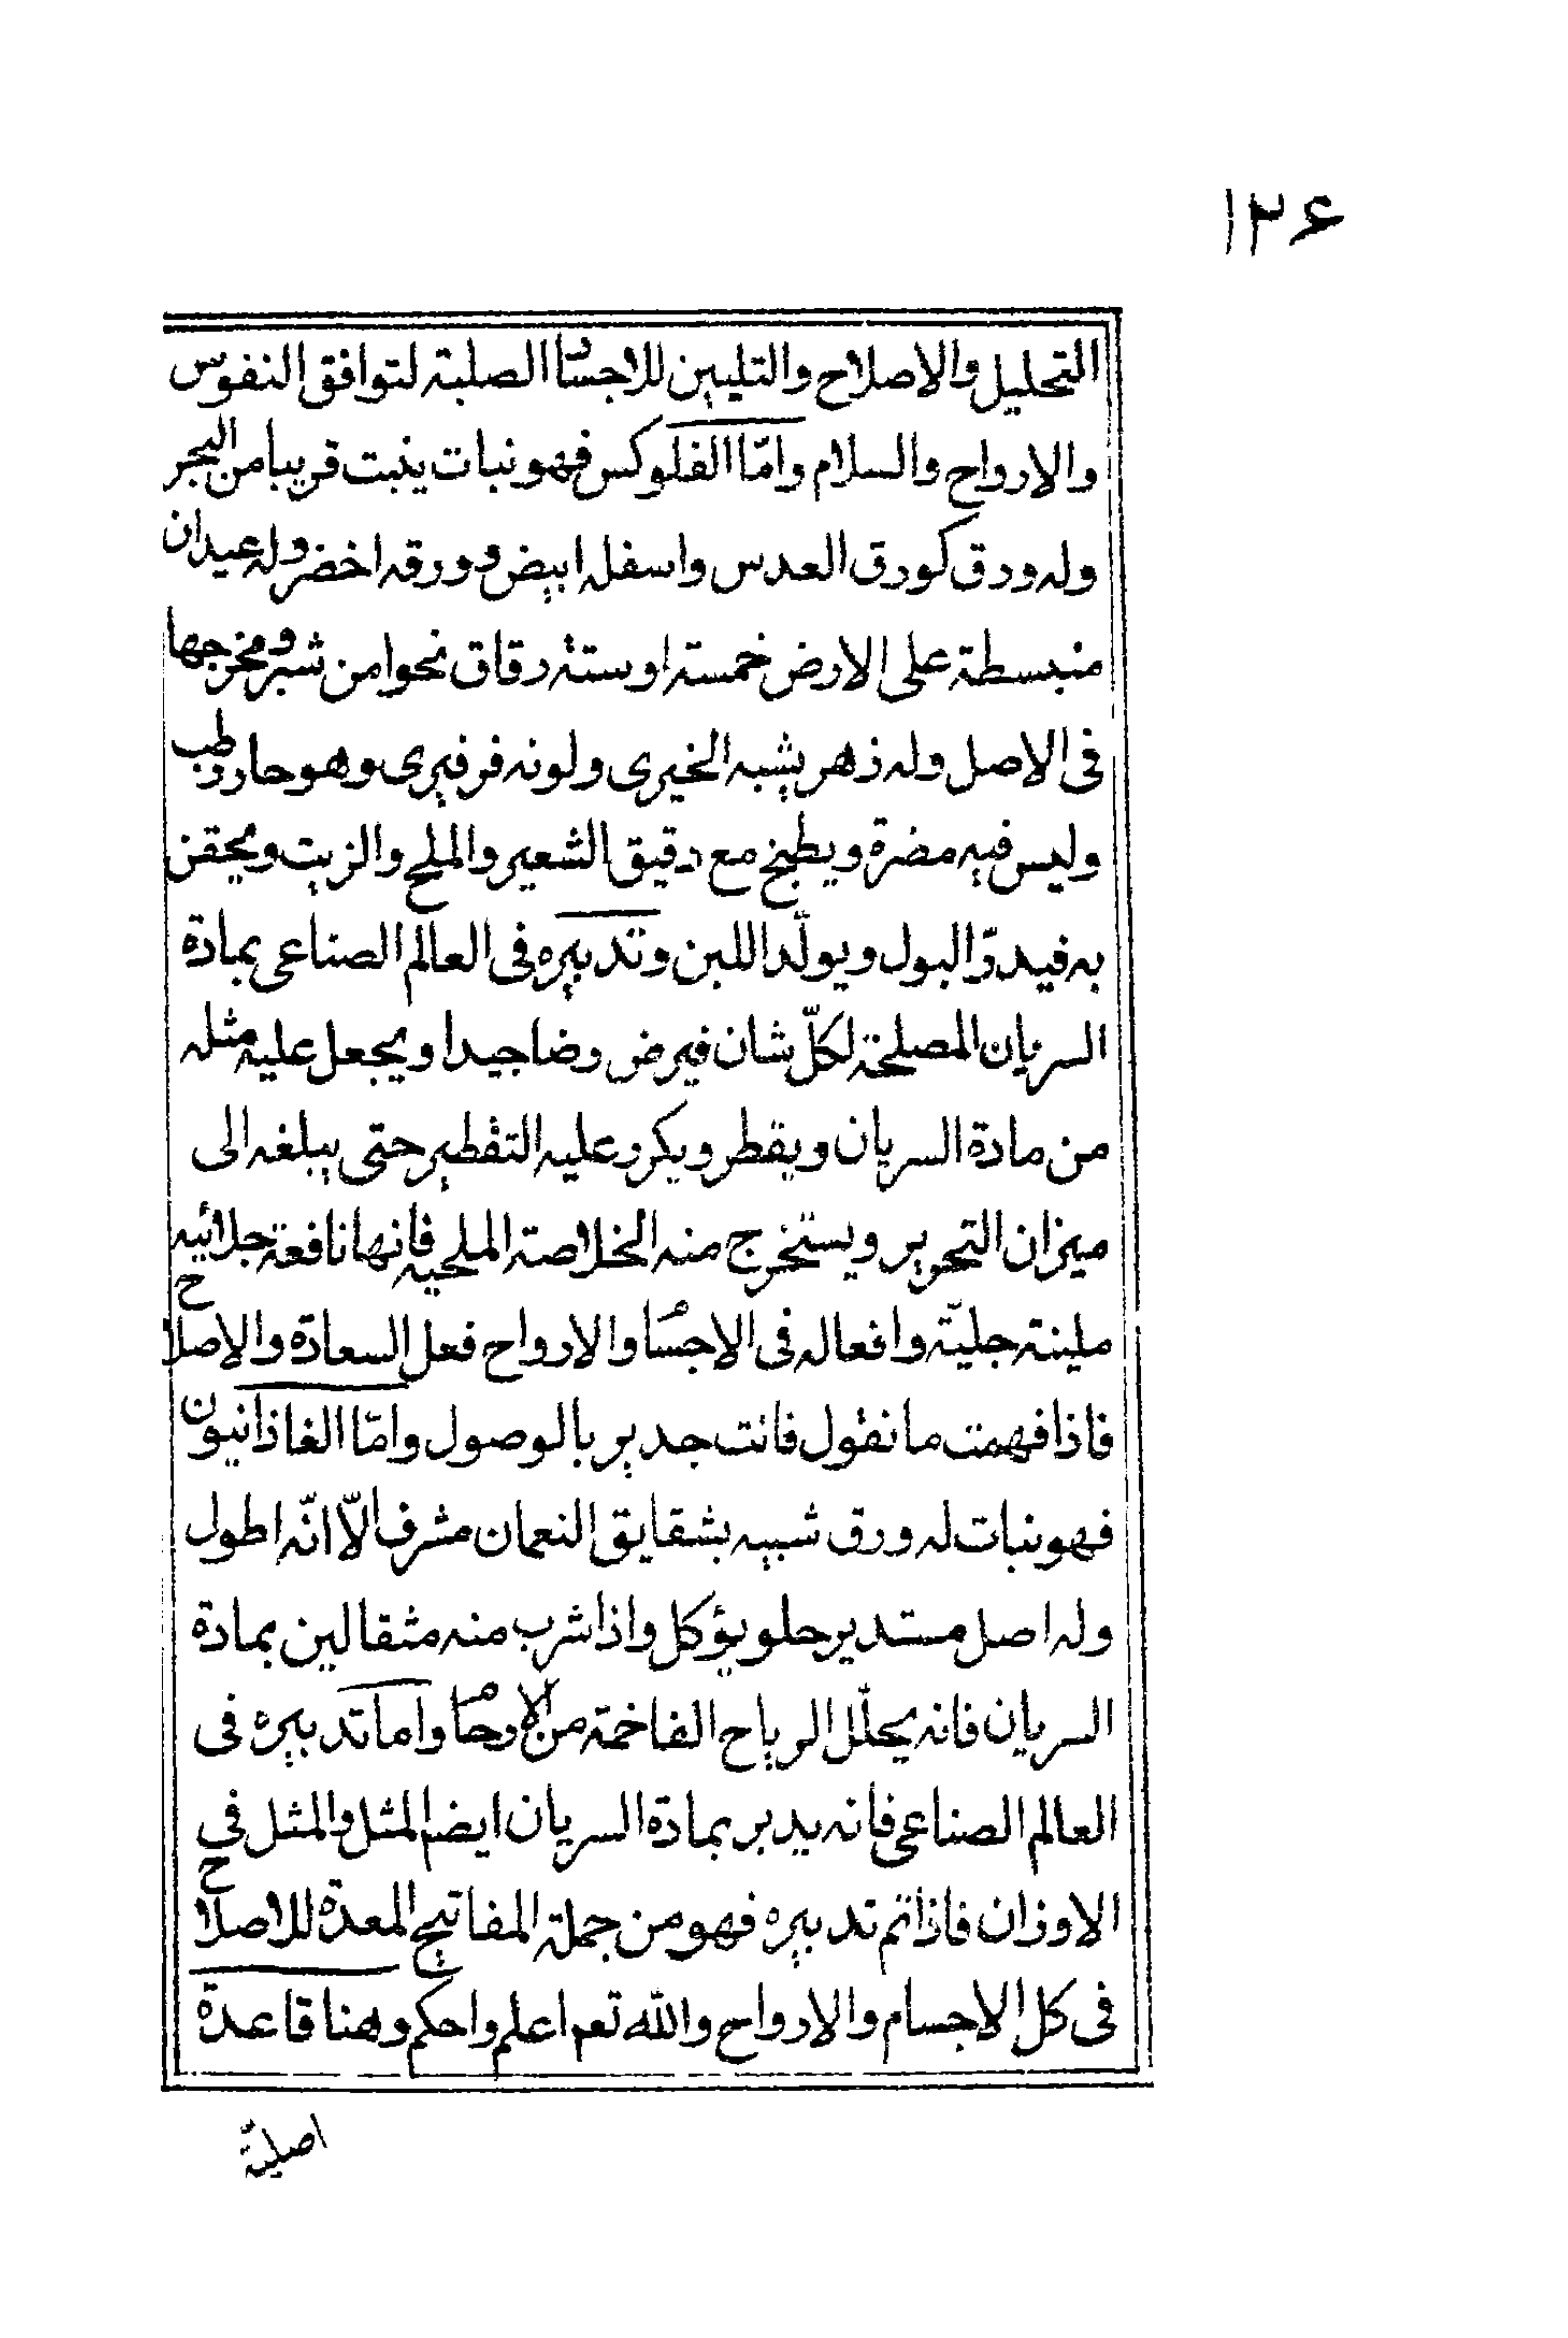 ١٢۶
التحليل والاصلاح والتليين للاجساد الصلبة لتوافق النفوس
والارواح والسلام وامّا الفلوكس فهو نبات ينبت قريبا من البحر
وله ورق كورق العدس واسفله ابيض وورقه اخضر وله عيدان
منبسطة على الارض خمسة او ستة دقاق نحوا من شبر ومخرجها
فى الاصل وله زهر يشبه الخيرى ولونه فرفيرى وهو حار رطب
وليس فيه مضرة ويطبخ مع دقيق الشعير والملح والزيت ويحقن
به فيدرّ البول ويولّد اللبن وتدبيره فى العالم الصناعى بمادة
السريان المصلحة لكلّ شان فيرض رضا جيدا ويجعل عليه مثله
من مادة السريان ويقطر ويكرر عليه التقطير حتى يبلغه الى
ميزان التحرير ويستخرج منه الخلاصة الملحيه فانها نافعة جلائيه
ملينة جليّة وافعاله فى الاجسام والارواح فعل السعادة والاصلاح
فاذا فهمت ما نقول فانت جدير بالوصول وامّا الغاذانيون
فهو نبات له ورق شبيه بشقايق النعمان مشرف الّا انّه اطول
وله اصل مستدير حلو يؤكل واذا شرب منه مثقالين بمادة
السريان فانه يحلّل الرياح الفاخمة من الارحام واما تدبيره فى
العالم الصناعى فانه يدبر بمادة السريان ايضا المثل والمثل فى
الاوزان فاذا تم تدبيره فهو من جملة المفاتيح المعدة للاصلاح
فى كل الاجسام والارواح والله تعم اعلم واحكم وهنا قاعدة
اصلية